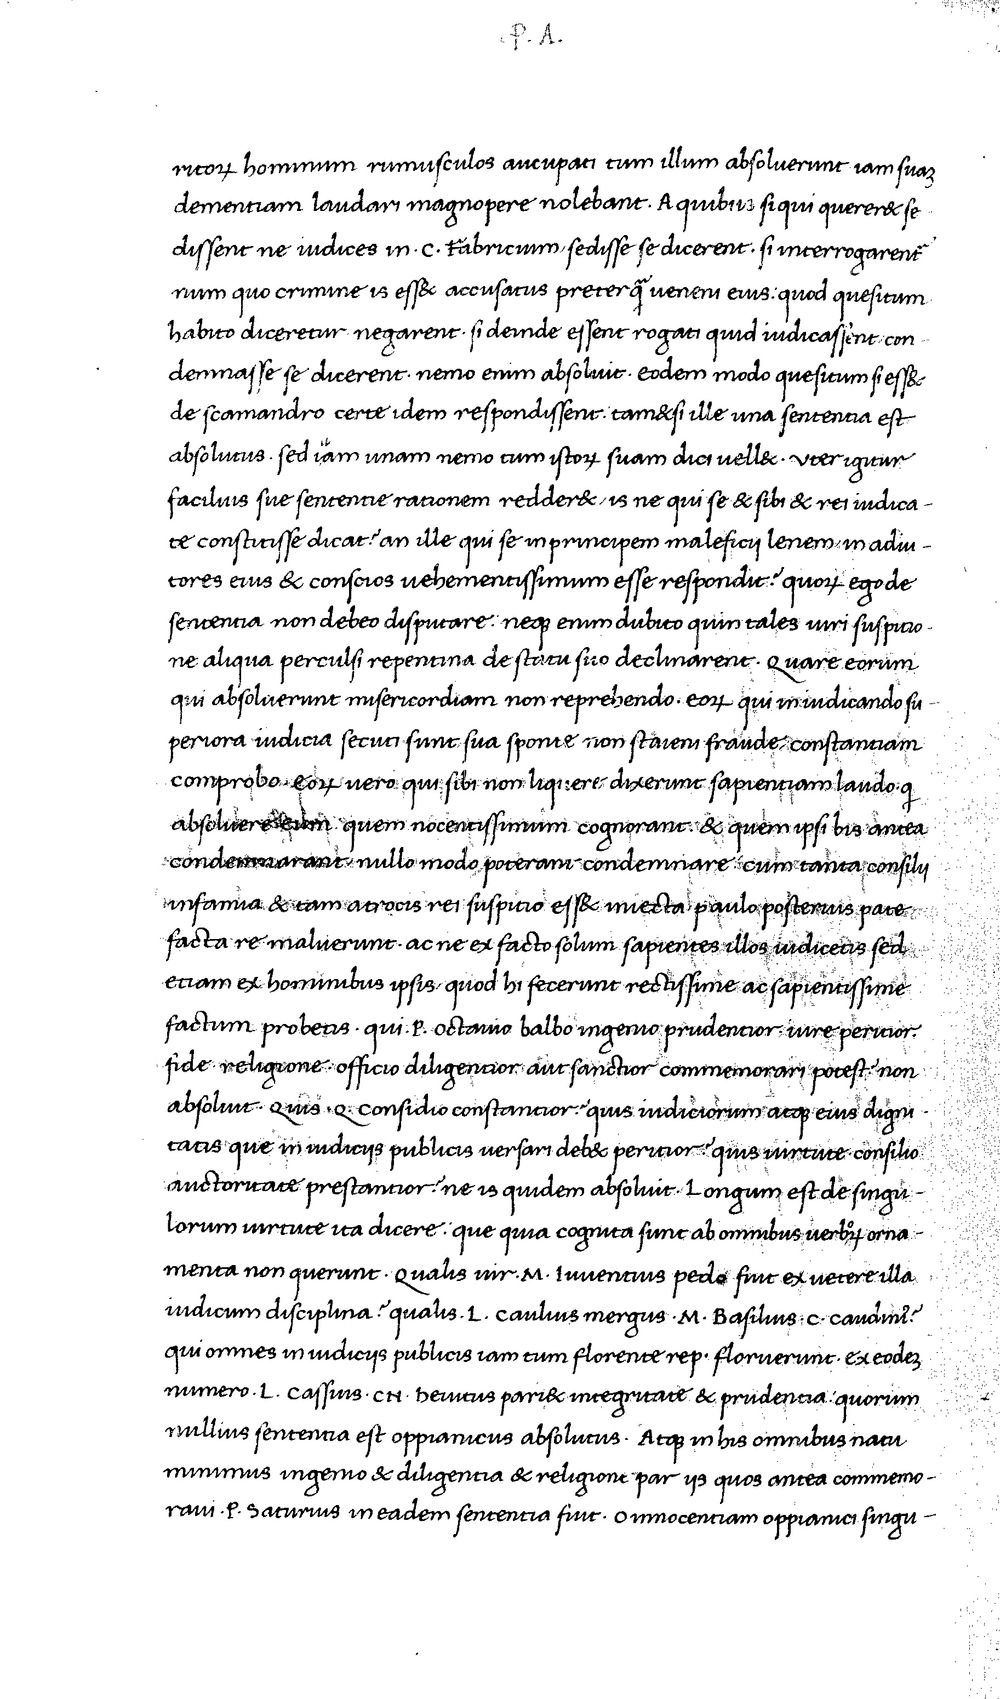 P. A.
ritoꝝ hominum rumusculos aucupati tum illum absoluerunt iam suaꝫ
dementiam laudari magnopere nolebant. A quibus si qui querer& se
dissent ne iudices in. C. Fabricium, sedisse se dicerent. si interrogarent̃
num quo crimine is ess& accusatus preterq̃ ueneni eius: quod quesitum
habito diceretur negarent. si deinde essent rogati quid iudicassent: con-
demnasse se dicerent. nemo enim absoluit. Eodem modo quesitum si ess&
de scamandro certe idem respondissent. tam&si ille una sententia est
absolutus. sed iam unam nemo tum istoꝝ suam dici uell&. Vter igitur
facilius sue sententie rationem redder&, is ne qui se & sibi & rei iudica-
te constitisse dicat? an ille qui se in principem maleficij lenem, in adiu-
tores eius & conscios uehementissimum esse respondit? quoꝝ ego de
sententia non debeo disputare. neqꝫ enim dubito quin tales uiri suspitio-
ne aliqua perculsi repentina de statu suo declinarent. Quare eorum
qui absoluerunt misericordiam non reprehendo. eoꝝ qui in iudicando su-
periora iudicia secuti sunt sua sponte non staieni fraude, constantiam
comprobo. Eoꝝ uero qui sibi non liquere dixerunt sapientiam laudo. q
absoluere eum quem nocentissimum cognorant. & quem ipsi bis antea
condemnarant. nullo modo poterant condemnare cum tanta consilij
infamia & tam atrocis rei suspitio ess& iniecta paulo posterius pate
facta re maluerunt. ac ne ex facto solum sapientes illos iudicetis sed
etiam ex hominibus ipsis, quod hi fecerunt rectissime ac sapientissime
factum probetis. qui. P. octauio balbo ingenio prudentior. iure peritior.
fide religione officio diligentior aut sanctior commemorari potest? non
absoluit. Quis. Q. Considio constantior? quis iudiciorum atqꝫ eius digni-
tatis que in iudicijs publicis uersari deb& peritior? quis uirtute consilio
auctoritate prestantior? ne is quidem absoluit. Longum est de singu-
lorum uirtute ita dicere. que quia cognita sunt ab omnibus uerboꝝ orna-
menta non querunt. Qualis uir. M. Iuuentius pedo fuit ex uetere illa
iudicum disciplina? qualis. L. Caulius mergus. M. Basilius. C. Caudini?
qui omnes in iudicijs publicis iam tum florente rep. floruerunt. Ex eodeꝫ
numero. L. Cassius. CN. heiutus pari& integritate & prudentia. quorum
nullius sententia est oppianicus absolutus. Atqꝫ in his omnibus natu
minimus ingenio & diligentia & religione par ijs quos antea commemo-
raui. P. Saturius in eadem sententia fuit. O innocentiam oppianici singu-